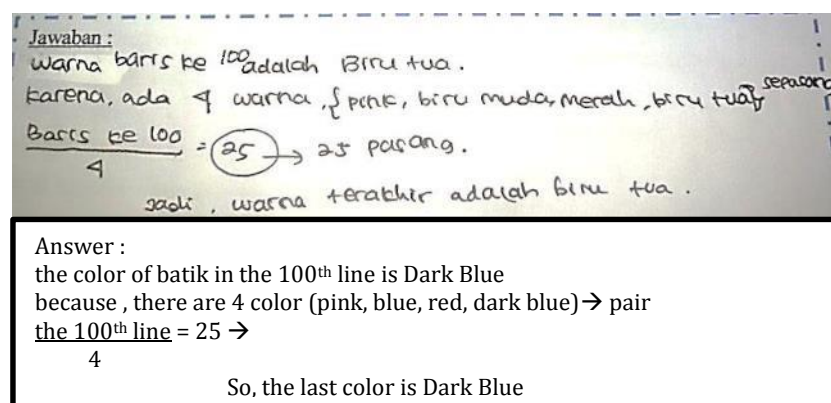 Jawaban :
warna baris ke 100 adalah Biru tua.
karena, ada 4 warna, {pink, biru muda, merah, biru tua} sepasang
Baris ke 100 = 25 → 25 pasang.
4
Jadi, warna terakhir adalah biru tua.
Answer :
the color of batik in the 100th line is Dark Blue
because , there are 4 color (pink, blue, red, dark blue)→ pair
the 100th line = 25 →
4
So, the last color is Dark Blue